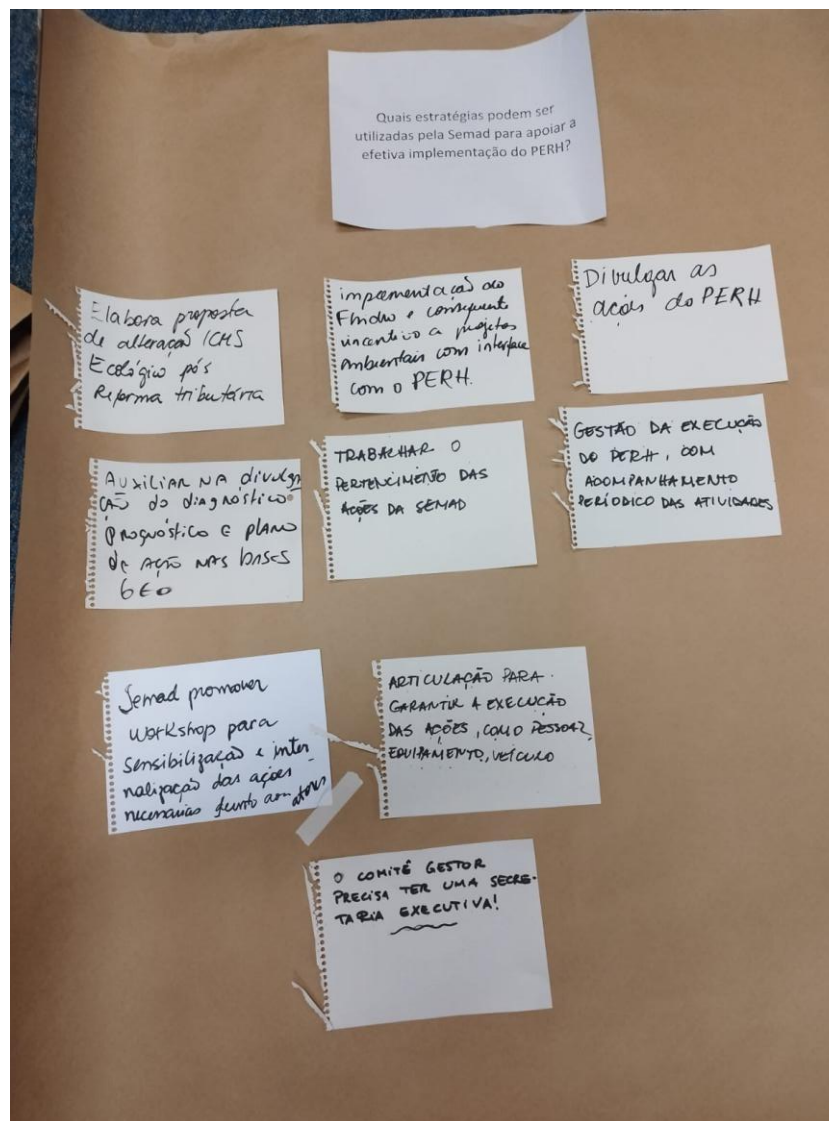 Quais estratégias podem ser
utilizadas pela Semad para apoiar a
efetiva implementação do PERH?
Elabora proposta
de alteração ICMS
Ecológico pós
Reforma tributária
implementação do
Fhidro e consequente
incentivo a projetos
Ambientais com interface
com o PERH.
Divulgar as
ações do PERH
AUXILIAR NA divulga
ÇÃO do diagnóstico
prognóstico E PLANO
de AÇÃO NAS bASES
GEO
TRABALHAR O
PERTENCIMENTO DAS
AÇÕES DA SEMAD
GESTÃO DA EXECUÇÃO
DO PERH, COM
ACOMPANHAMENTO
PERÍODICO DAS ATIVIDADES
Semad promover
workshop para
sensibilização e inter
nalização das ações
necessárias junto aos atores
ARTICULAÇÃO PARA
GARANTIR A EXECUÇÃO
DAS AÇÕES, COMO PESSOAL,
EQUIPAMENTO, VEÍCULO
O COMITÊ GESTOR
PRECISA TER UMA SECRE-
TARIA EXECUTIVA!